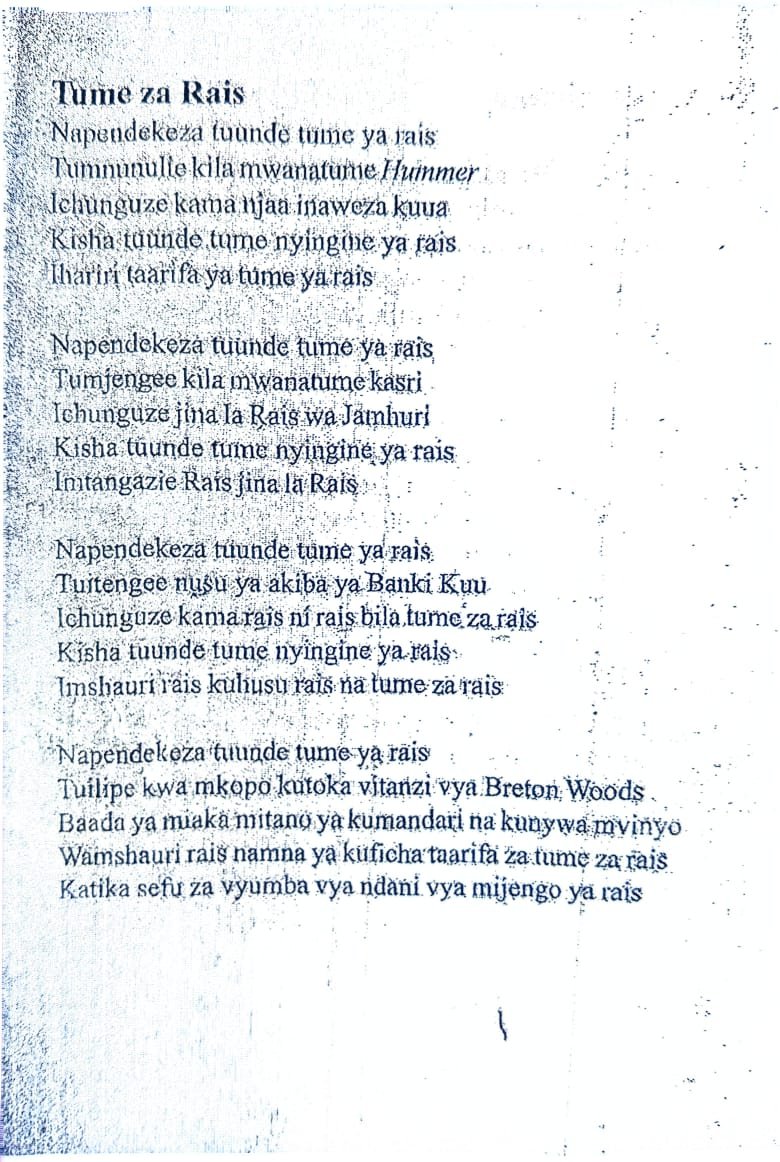 Tume za Rais
Napendekeza tuunde tume ya rais
Tumnunulie kila mwanatume Hummer
Ichunguze kama njaa inaweza kuua
Kisha tuunde tume nyingine ya rais
Ihariri taarifa ya tume ya rais

Napendekeza tuunde tume ya rais
Tumjengee kila mwanatume kasri
Ichunguze jina la Rais wa Jamhuri
Kisha tuunde tume nyingine ya rais
Imtangazie Rais jina la Rais

Napendekeza tuunde tume ya rais
Tuitengee nusu ya akiba ya Banki Kuu
Ichunguze kama rais ni rais bila tume za rais
Kisha tuunde tume nyingine ya rais
Imshauri rais kuhusu rais na tume za rais

Napendekeza tuunde tume ya rais
Tuilipe kwa mkopo kutoka vitanzi vya Breton Woods
Baada ya miaka mitano ya kumandari na kunywa mvinyo
Wamshauri rais namna ya kuficha taarifa za tume za rais
Katika sefu za vyumba vya ndani vya mijengo ya rais